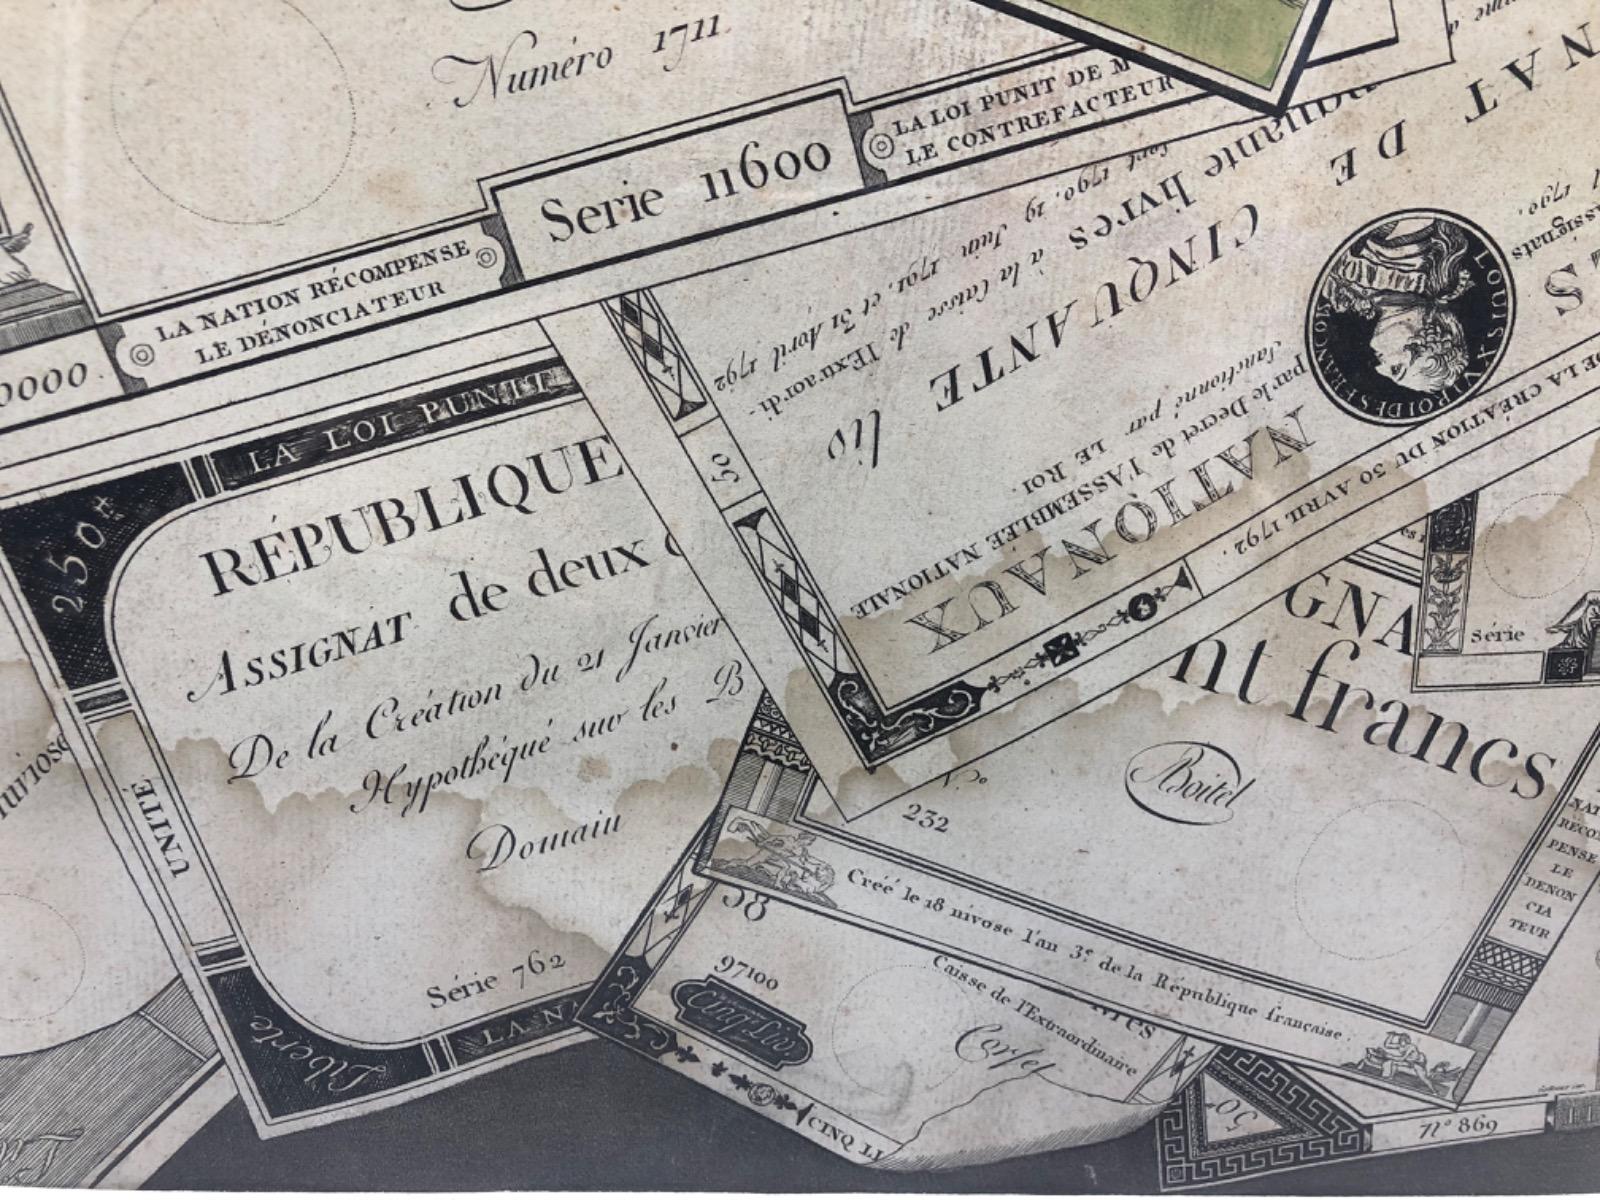 Numéro 1711
Serie 11600
LA LOI PUNIT DE M
LE CONTREFACTEUR
LA NATION RÉCOMPENSE
LE DÉNONCIATEUR
0000
LA LOI PUNIT
250
RÉPUBLIQUE
ASSIGNAT de deux
De la Création du 21 Janvier
Hypothéqué sur les B
Domain
Série 762
UNITÉ
Liberté
LA N
DE LA CRÉATION DU 30 AVRIL 1792.
NATIONAUX
par le Decret de l'ASSEMBLÉE NATIONALE
Sanctionné par LE ROI.
CINQUANTE
liv
livres à la Caisse de l'Extraordi-
19 Juin 1791, et 31 Avril 1792
50
LOUIS XVI ROI DES FRANCOIS
Assignats
1790,
DE
NAT
GNA
nt francs
Série
Boitel
N.º
232
Créé le 18 nivose l'an 3.e de la République française.
NAT
RECOM
PENSE
LE
DENON
CIA
TEUR
58
97100
Cinq Liv
Caisse de l'Extraordinaire
Corsel
CINQ LI
50
Nº 869